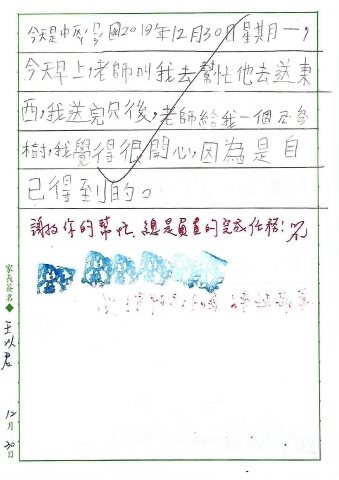 今天是中民公國2019年12月30日星期一,
今天早上,老師叫我去幫忙他去送東
西,我送完只後,老師給我一個
樹,我覺得很開心,因為是自
己得到的。
謝謝你的幫忙 總是負責的完成任務!
家長簽名◆
王以君
12月30日